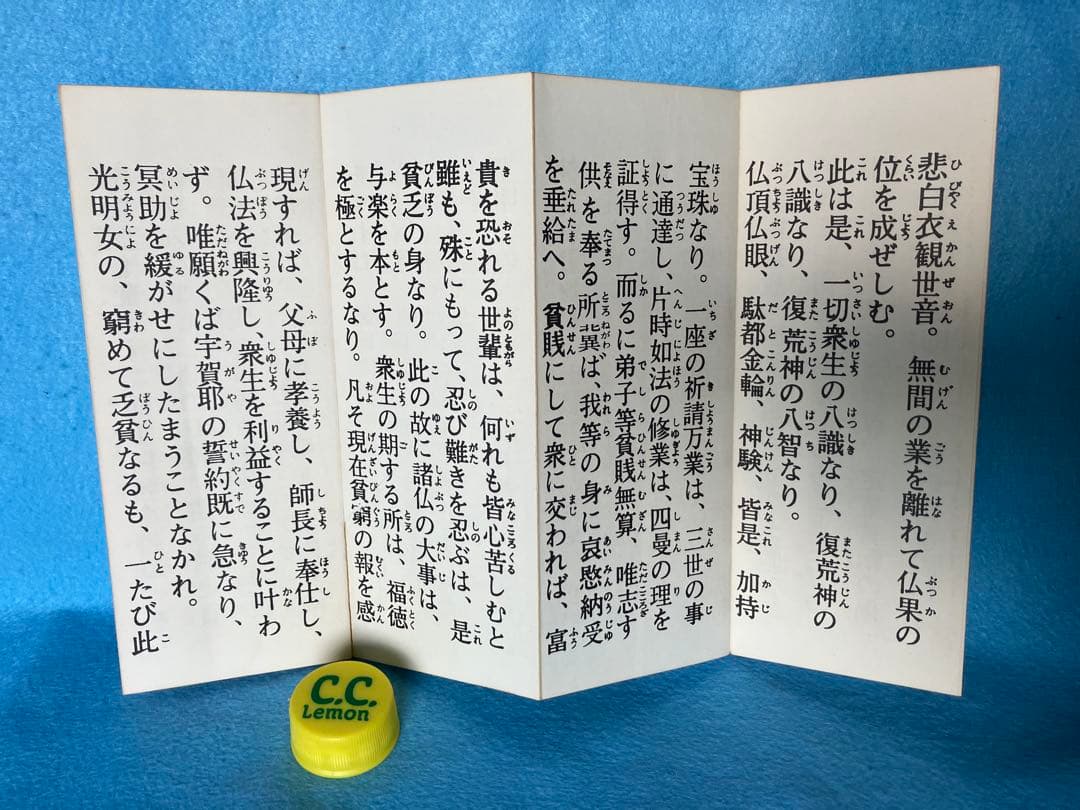 悲白衣観世音。無間の業を離れて仏果の
位を成ぜしむ。
此は是、一切衆生の八識なり、復荒神の
八識なり、復荒神の八智なり。
仏頂仏眼、駄都金輪、神験、皆是、加持
宝珠なり。一座の祈請万業は、三世の事
に通達し、片時如法の修業は、四曼の理を
証得す。而るに弟子等貧賤無算、唯志す
供を奉る所冀ば、我等の身に哀愍納受
を垂給へ。貧賤にして衆に交われば、富
貴を恐れる世輩は、何れも皆心苦しむと
雖も、殊にもって、忍び難きを忍ぶは、是
貧乏の身なり。此の故に諸仏の大事は、
与楽を本とす。衆生の期する所は、福徳
を極とするなり。凡そ現在貧窮の報を感
現すれば、父母に孝養し、師長に奉仕し、
仏法を興隆し、衆生を利益することに叶わ
ず。唯願くば宇賀耶の誓約既に急なり、
冥助を緩がせにしたまうことなかれ。
光明女の、窮めて乏貧なるも、一たび此
C.C.
Lemon